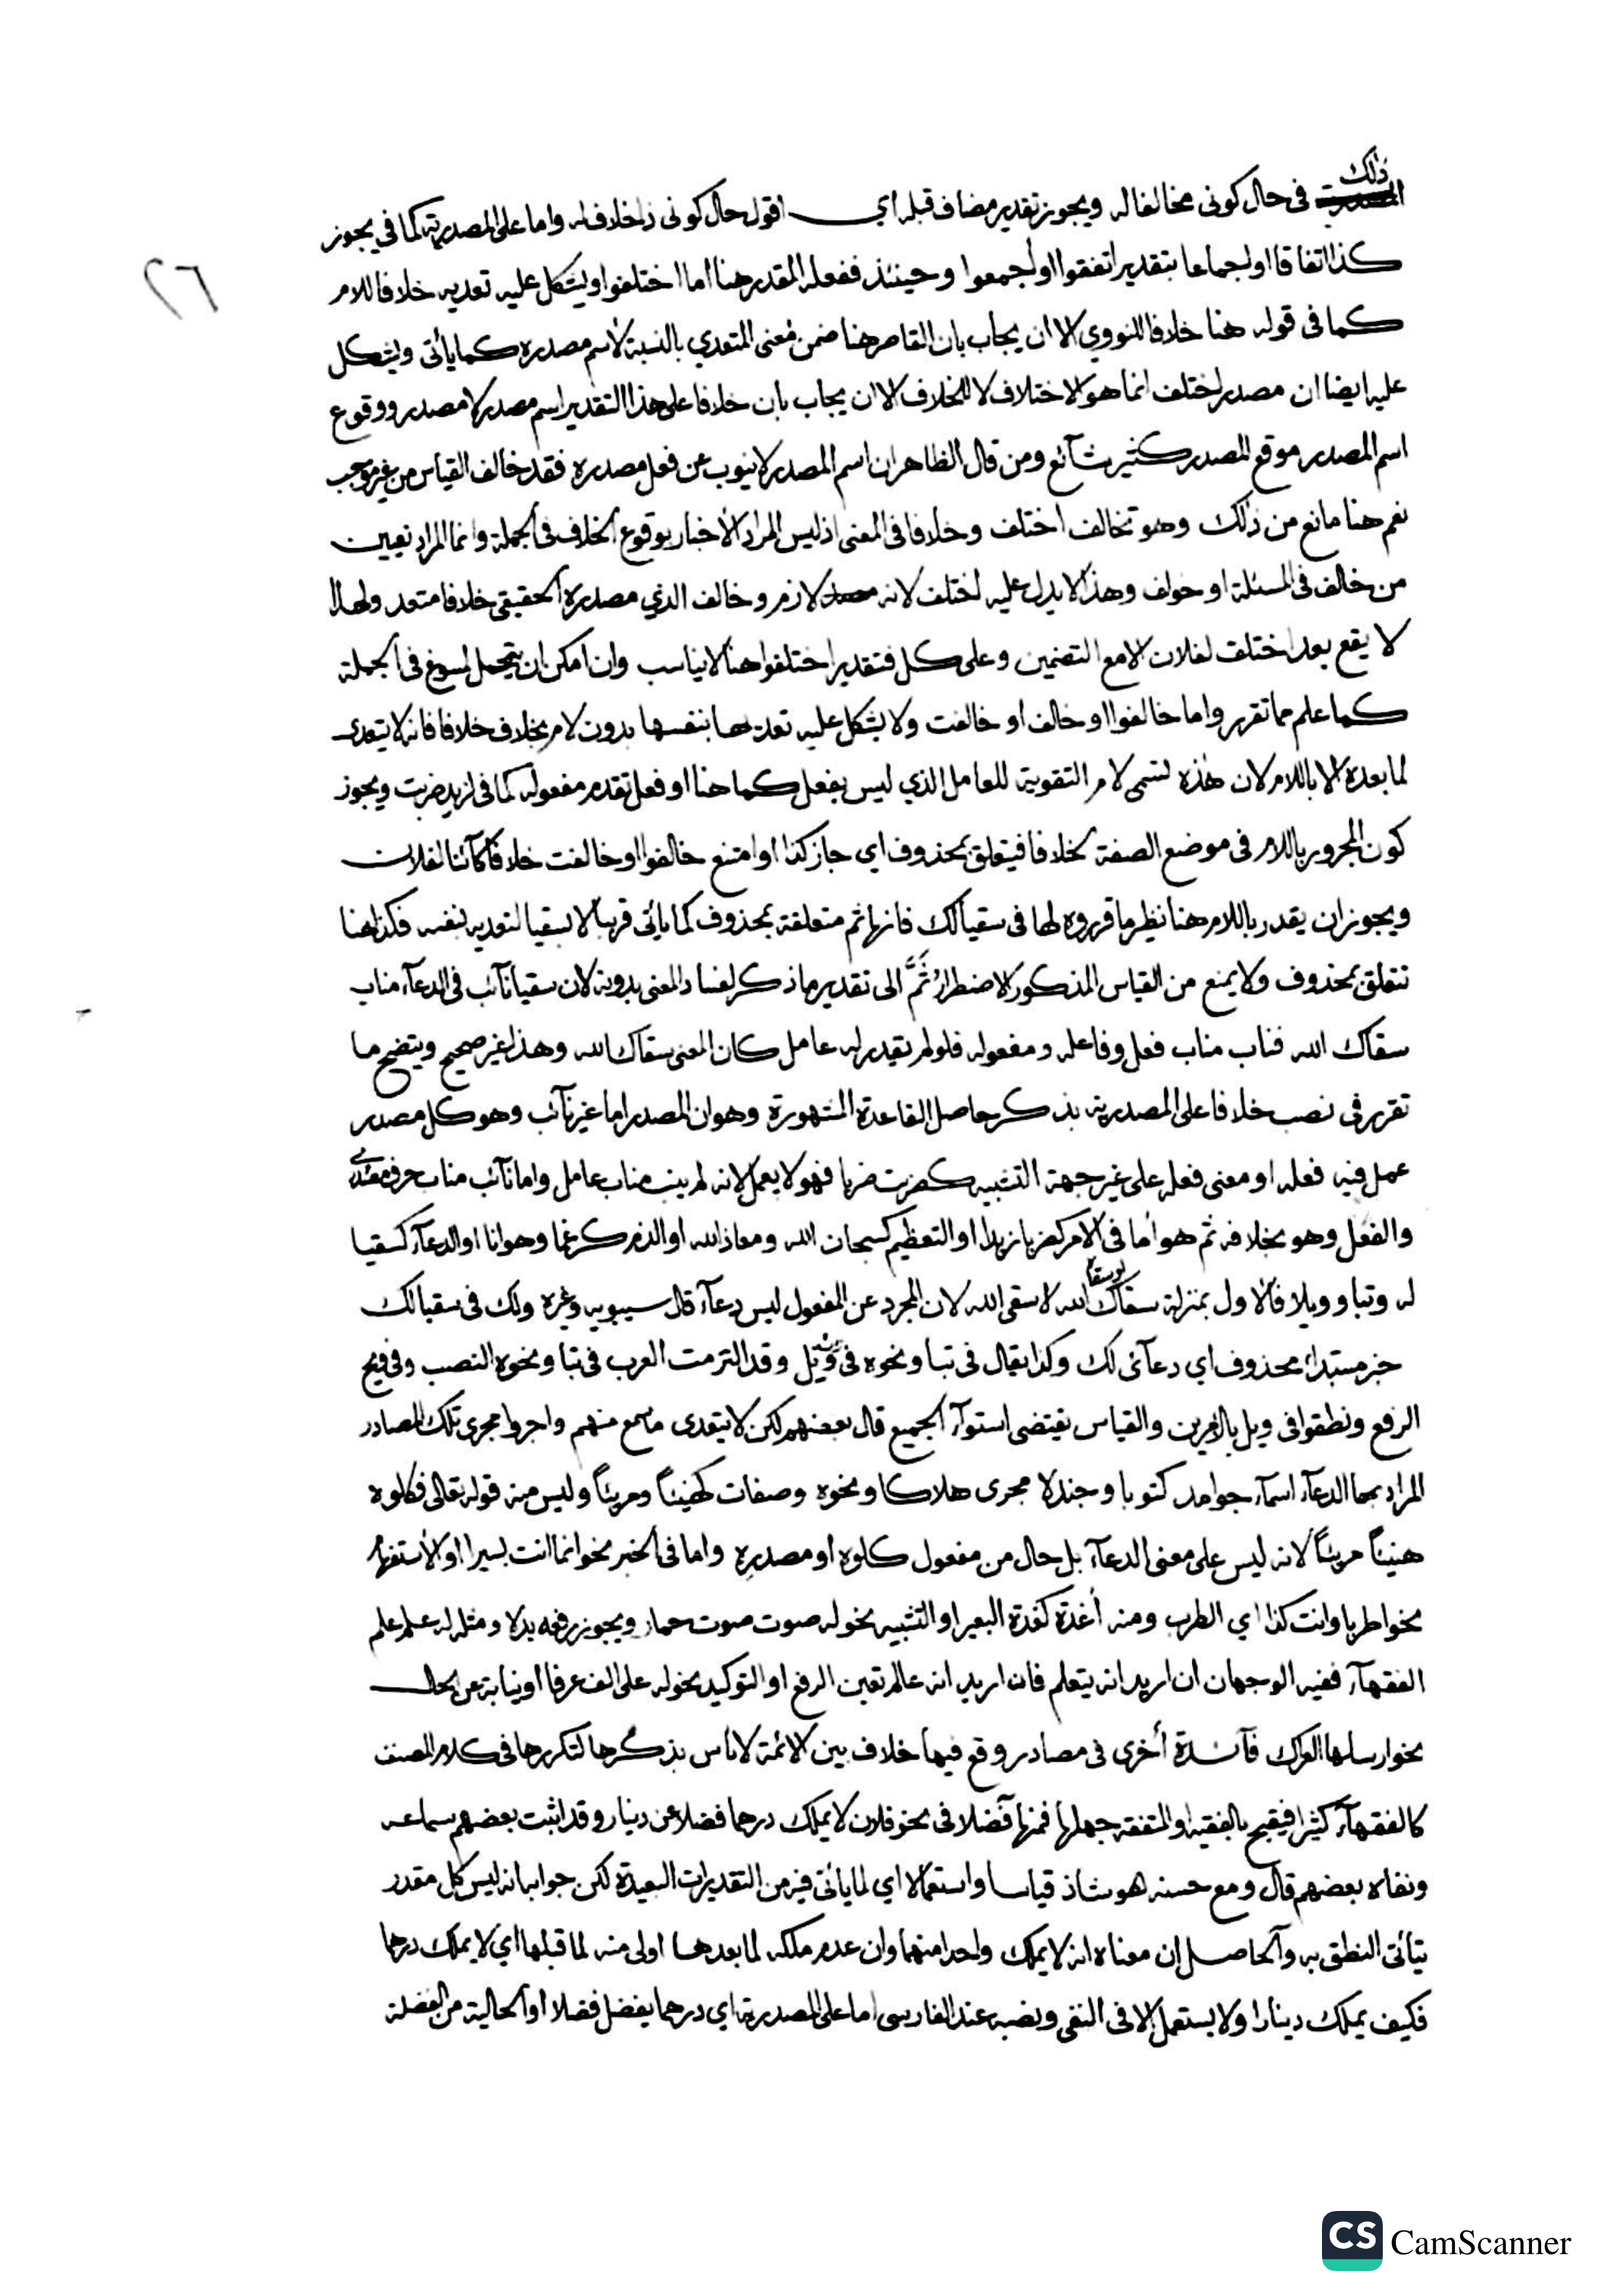 ذلك
في حال كوني مخالفا له ويجوز تقدير مضاف قبله اي اقول حال كوني ذا خلاف له واما على المصدرية كما في يجوز
كذا اتفاقا او اجماعا بتقدير اتفقوا او اجمعوا وحينئذ ففعله المقدر هنا اما اختلفوا ويشكل عليه تعديه خلافا للام
٢٦
كما في قوله هنا خلافا للنووي الا ان يجاب بان القاصر هنا ضمن معنى المتعدي بالنسبة لاسم مصدره كما يأتي ويشكل
عليه ايضا ان مصدر اختلف انما هو الاختلاف لا الخلاف الا ان يجاب بان خلافا على هذا التقدير اسم مصدر لا مصدر ووقوع
اسم المصدر موقع المصدر كثير شآئع ومن قال الظاهر ان اسم المصدر لا ينوب عن فعل مصدره فقد خالف القياس من غير موجب
نعم هنا مانع من ذلك وهو تخالف اختلف وخلافا في المعنى اذ ليس المراد الاخبار بوقوع الخلاف في الجملة وانما المراد تعيين
من خالف في المسئلة او خولف وهذا لا يدل عليه اختلف لانه لازم وخالف الذي مصدره الحقيقي خلافا متعد ولهذا
لا يقع بعد اختلف لفلان الا مع التضمين وعلى كل فتقدير اختلفوا هنا لا يناسب وان امكن ان يتحمل لمسوغ في الجملة
كما علم مما تقرر واما خالفوا او خالف او خالفت ولا يشكل عليه تعديها بنفسها بدون لام بخلاف خلافا فانه لا يتعدى
لما بعده الا باللام لان هذه تسمى لام التقوية للعامل الذي ليس بفعل كما هنا او فعل تقدم مفعوله كما في لزيد ضربت ويجوز
كون المجرور باللام في موضع الصفة لخلافا فيتعلق بمحذوف اي جاز كذا او امتنع خالفوا او خالفت خلافا كآئنا لفلان
ويجوز ان يقدر باللام هنا نظير ما قرروه لها في سقيا لك فانها ثم متعلقة بمحذوف كما يأتي قريبا لا بسقيا لتعديه بنفسه فكذا هنا
تتعلق بمحذوف ولا يمنع من القياس المذكور الاضطرار ثَمَّ الى تقدير ما ذكر لفساد المعنى بدونه لان سقيا نآئب في الدعآء مناب
سقاك الله فناب مناب فعل وفاعله ومفعوله فلو لم يقدر له عامل كان المعنى سقاك الله وهذا غير صحيح ويتضح ما
تقرر في نصب خلافا على المصدرية بذكر حاصل القاعدة المشهورة وهو ان المصدر اما غير نآئب وهو كل مصدر
عمل فيه فعله او معنى فعله على غير جهة التشبيه كضربت ضربا فهو لا يعمل لانه لم ينب مناب عامل واما نآئب مناب حرف مصدري
والفعل وهو بخلافه ثم هو اما في الامر كضربا زيدا او التعظيم كسبحان الله ومعاذ الله او الذم كرغما وهوانا او الدعآء كسقيا
له وتبا وويلا فالاول بمنزلة سقاك الله لا سقى الله لان المجرد عن المفعول ليس دعآء قال سيبويه وغيره ولك في سقيا لك
خبر مبتدا محذوف اي دعآئي لك وكذا يقال في تبا ونحوه في ويل وقد التزمت العرب في تبا ونحوه النصب وفي ويح
الرفع ونطقوا في ويل بالامرين والقياس يقتضي استوآء الجميع قال بعضهم لكن لا يتعدى ما سمع منهم واجروا مجرى تلك المصادر
المراد بها الدعآء اسمآء جوامد كتوبا وجندلا مجرى هلاكا ونحوه وصفات كهنيئاً ومريئاً وليس منه قوله تعالى فكلوه
هنيئاً مريئاً لانه ليس على معنى الدعآء بل حال من مفعول كلوه او مصدره واما في الخبر نحو انما انت سيرا او الاستفهام
نحو اطربا وانت كذا اي الطرب ومنه أغدة كغدة البعير او التشبيه نحو له صوت صوت حمار ويجوز رفعه بدلا ومثله له علم علم
الفقهآء ففيه الوجهان ان اريد انه يتعلم فان اريد انه عالم تعين الرفع او التوكيد نحو له على الف عرفا او نيابة عن الحال
نحو ارسلها العراك فآئدة أخرى في مصادر وقع فيها خلاف بين الائمة لا بأس بذكرها لتكررها في كلام المصنف
كالفقهآء كثيرا فيقبح بالفقيه او المتفقه جهلها فمنها فضلا في نحو فلان لا يملك درهما فضلا عن دينار وقد اثبت بعضهم سماعه
ونفاه بعضهم قال ومع حسنه هو شاذ قياسا واستعمالا اي لما يأتي فيه من التقديرات البعيدة لكن جوابه انه ليس كل مقدر
يتأتى النطق به والحاصل ان معناه انه لا يملك واحدا منهما وان عدم ملكه لما بعدها اولى منه لما قبلها اي لا يملك درهما
فكيف يملك دينارا ولا يستعمل الا في النفي ونصبه عند الفارسي اما على المصدرية اي درهما يفضل فضلا او الحالية من الفضلة
CS CamScanner